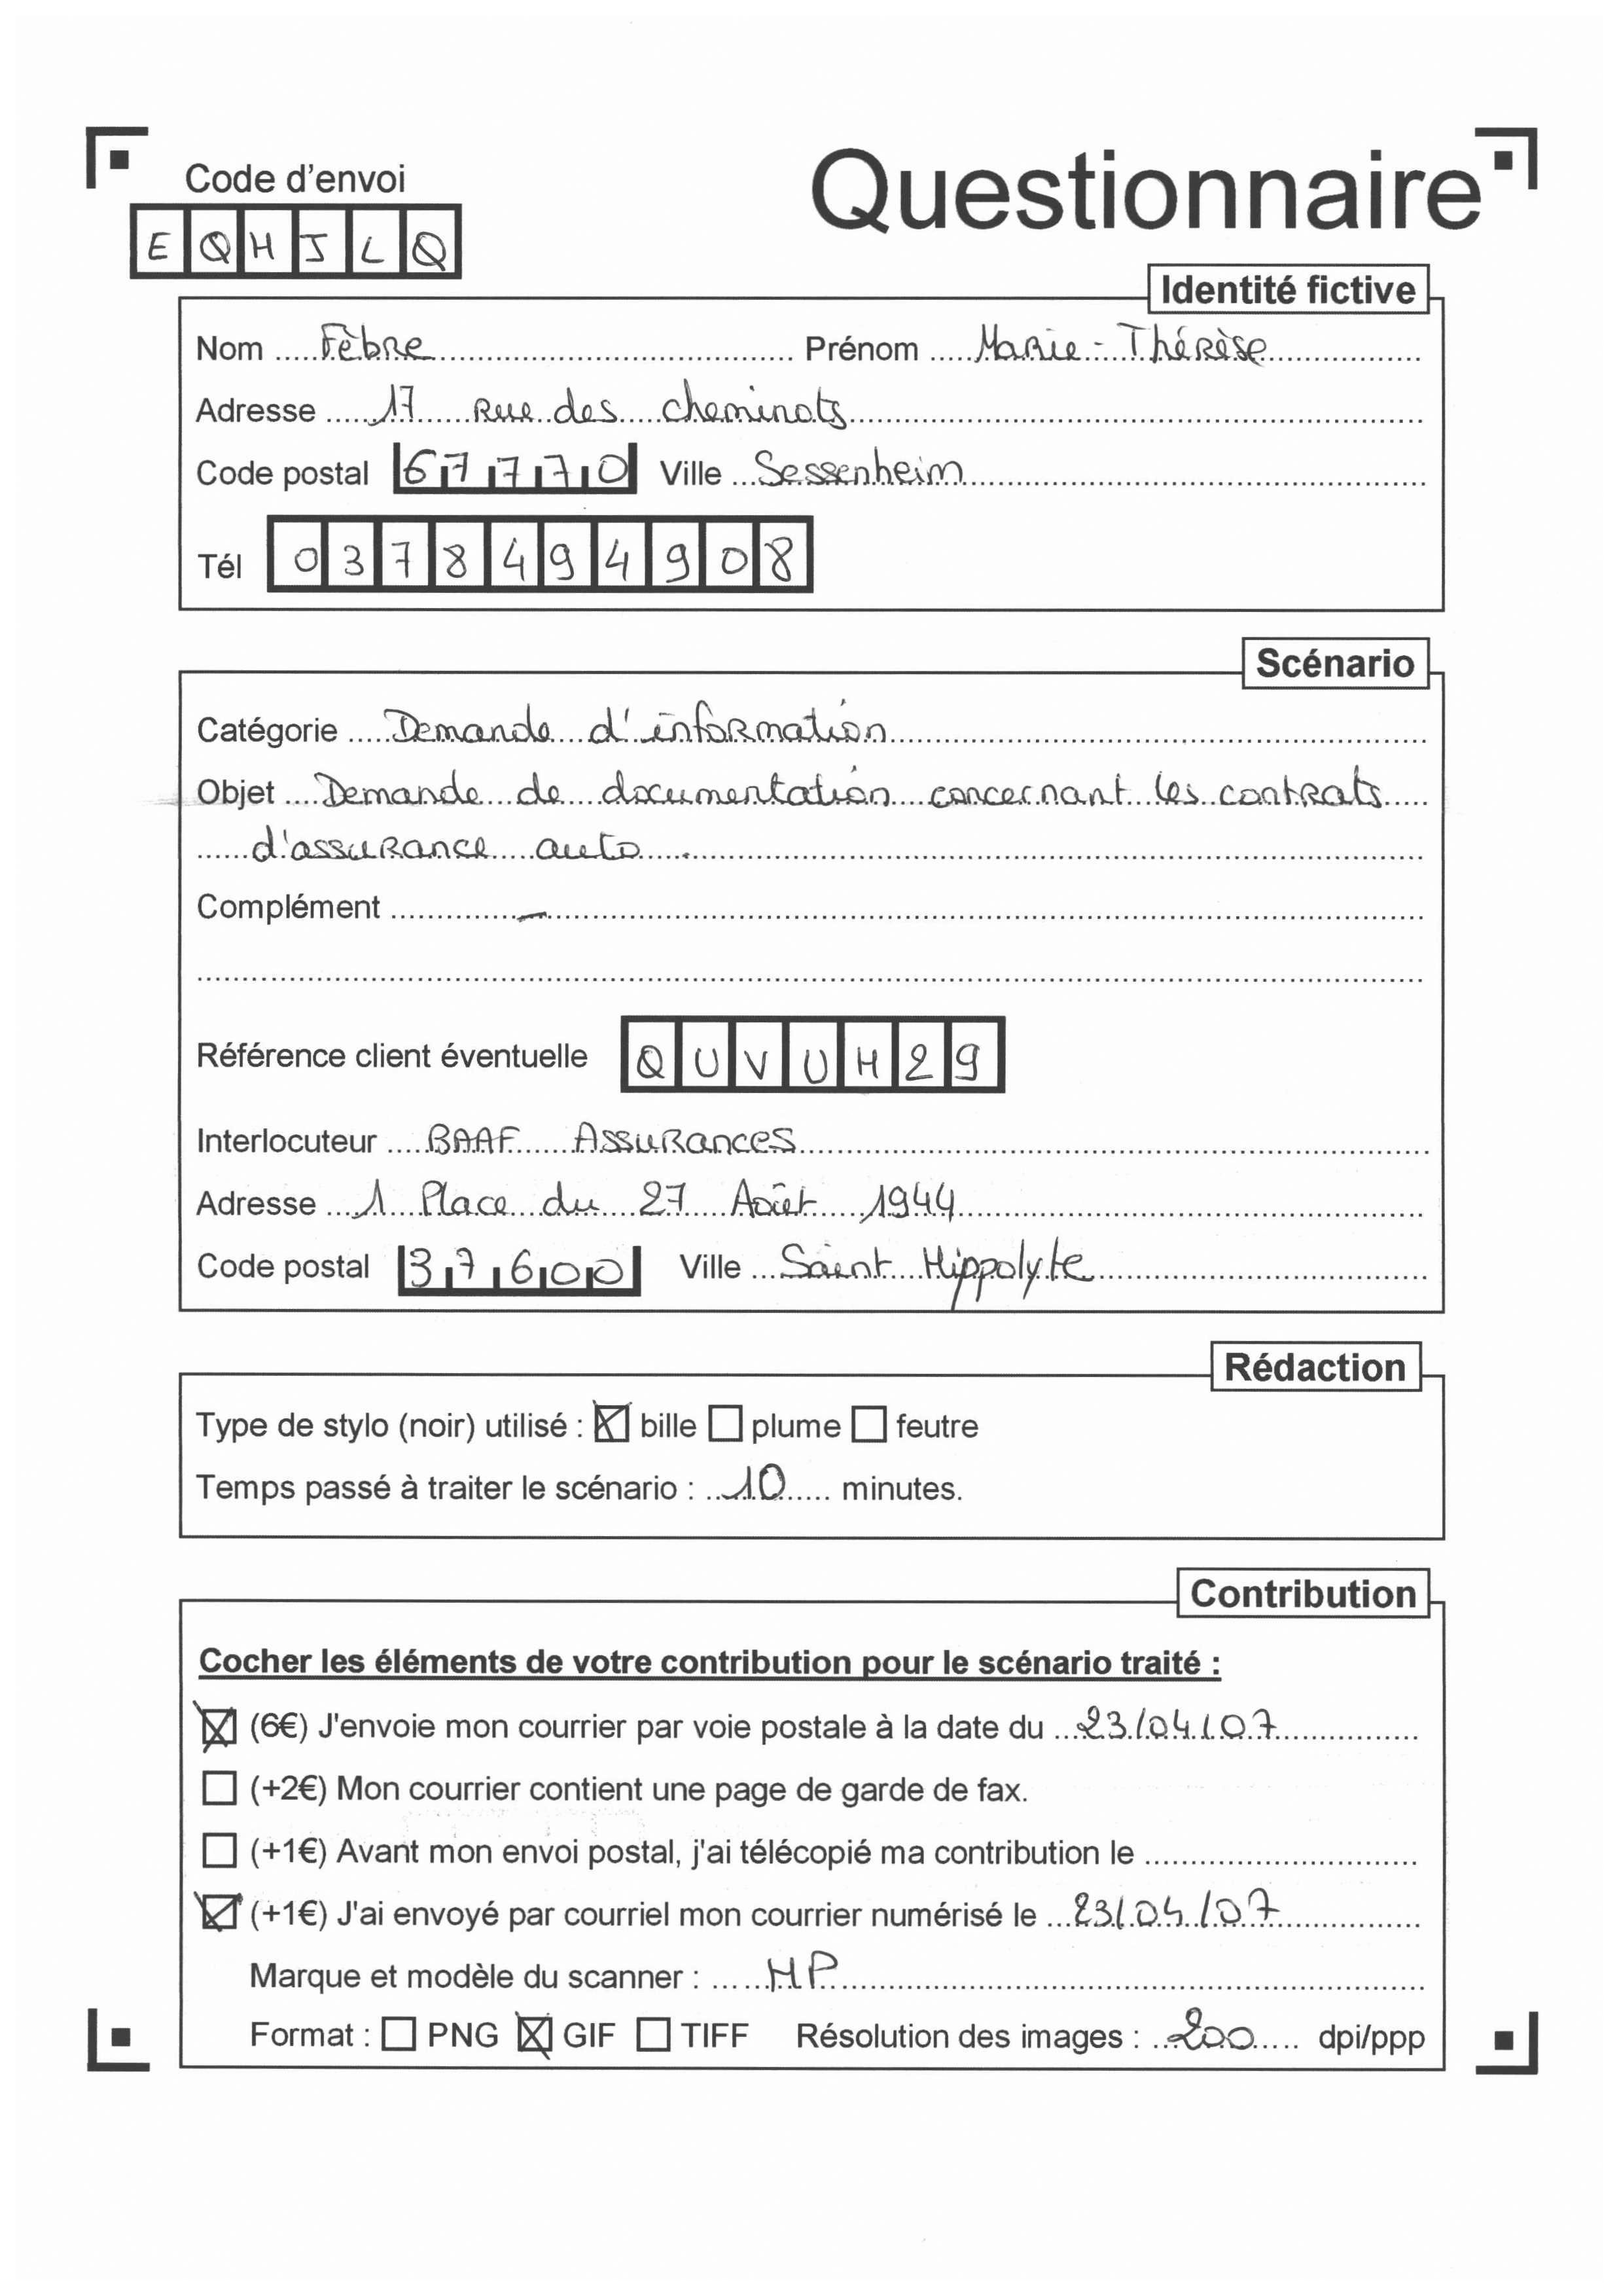 Code d'envoi
Questionnaire
EQHJLQ
Identité fictive
Nom Fèbre Prénom Marie-Thérèse
Adresse 17 rue des cheminots
Code postal 67770 Ville Sessenheim
Tél 0378494908
Scénario
Catégorie Demande d'information
Objet Demande de documentation concernant les contrats
d'assurance auto.
Complément –
Référence client éventuelle QUVUH29
Interlocuteur BAAF Assurances
Adresse 1 Place du 27 Août 1944
Code postal 37600 Ville Saint Hippolyte
Rédaction
Type de stylo (noir) utilisé : ☒ bille ☐ plume ☐ feutre
Temps passé à traiter le scénario : 10 minutes.
Contribution
Cocher les éléments de votre contribution pour le scénario traité :
☒ (6€) J'envoie mon courrier par voie postale à la date du 23/04/07
☐ (+2€) Mon courrier contient une page de garde de fax.
☐ (+1€) Avant mon envoi postal, j'ai télécopié ma contribution le
☒ (+1€) J'ai envoyé par courriel mon courrier numérisé le 23/04/07
Marque et modèle du scanner : HP
Format : ☐ PNG ☒ GIF ☐ TIFF Résolution des images : 200 dpi/ppp